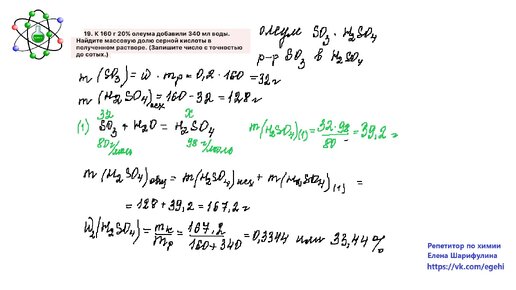 19. К 160 г 20% олеума добавили 340 мл воды.
Найдите массовую долю серной кислоты в
полученном растворе. (Запишите число с точностью
до сотых.)
олеум SO₃ · H₂SO₄
р-р SO₃ в H₂SO₄
m (SO₃) = ω · mр = 0,2 · 160 = 32 г
m (H₂SO₄)исх = 160 - 32 = 128 г
32 x
(1) SO₃ + H₂O = H₂SO₄
80 г/моль 98 г/моль
m(H₂SO₄)(1) = 32·98/80 = 39,2 г
m (H₂SO₄)общ = m(H₂SO₄)исх + m(H₂SO₄)(1) =
= 128 + 39,2 = 167,2 г
(H₂SO₄) = mк/mр = 167,2/160+340 = 0,3344 или 33,44 %
Репетитор по химии
Елена Шарифулина
https://vk.com/egehi